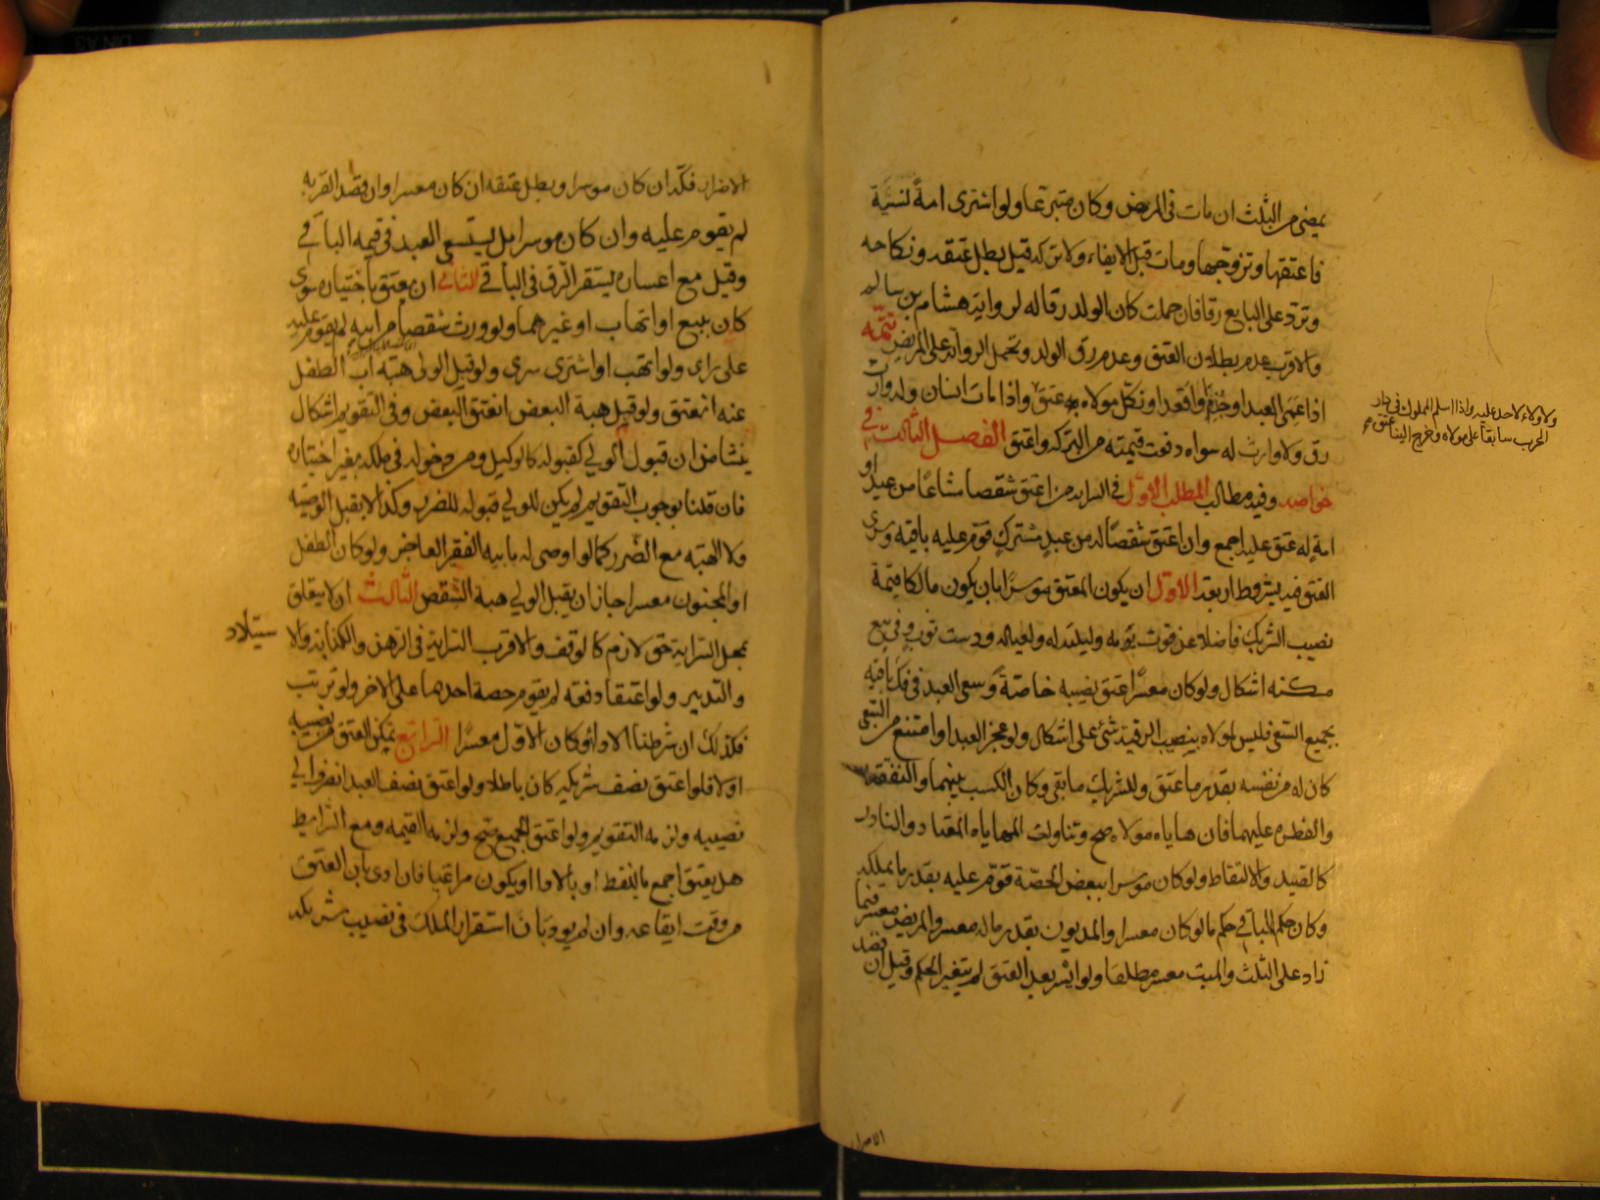 يمضي من الثلث ان مات في المرض وكان متبرعا ولو اشترى امةً نسيّة
فاعتقها وتزوجها ومات قبل الايفاء ولا تركه قيل بطل عتقه ونكاحه
وتردّ على البايع رقا فان حملت كان الولد رقا له لرواية هشام بن سالم
والاقرب عدم بطلان العتق وعدم رق الولد وتحمل الرواية على المريض تتمّه
اذا عمى العبد او جذم او اقعد او نكل مولاه به عتق واذا مات انسان وله وارث
رق ولا وارث له سواه دفعت قيمته من التركه واعتق الفصل الثالث في
خواصه وفيه مطالب المطلب الاوّل في السراية من اعتق شقصا مشاعًا من عبد او
امةٍ له عتق عليه اجمع وان اعتق شقصًا له من عبدٍ مشتركٍ قوّم عليه باقيه وسرى
العتق فيه بشروط اربعة الاوّل ان يكون المعتق موسرًا بان يكون مالكا قيمة
نصيب الشريك فاضلا عن قوت يومه وليلته له ولعياله ودست ثوبٍ وفي بيع
مسكنه اشكال ولو كان معسرًا عتق نصيبه خاصّةً وسعى العبد في فكّ باقيه
بجميع السعي فليس لمولاه بنصيب الرقية شئ على اشكال ولو عجز العبد او امتنع من السعي
كان له من نفسه بقدر ما عتق وللشريك ما بقي وكان الكسب بينهما والنفقة
والفطره عليهما فان هاياه مولاه صح وتناولت المهاياه المعتاد والنادر
كالصيد والالتقاط ولو كان موسرا ببعض الحصّة قوّم عليه بقدر ما يملكه
وكان حكم الباقي حكم ما لو كان معسرا والمديون بقدر ماله معسر والمريض معسر فيما
زاد على الثلث والميت معسر مطلقا ولو ايسر بعد العتق لم يتغير الحكم وقيل ان قصد
ولا ولاء لاحد عليه واذا اسلم المملوك في دار
الحرب سابقا على مولاه وخرج الينا عتق صح
الاضرار
الاضرار فكّه ان كان موسرا وبطل عتقه ان كان معسرا وان قصد القربه
لم يقوم عليه وان كان موسرا بل يستسعى العبد في قيمه الباقي
وقيل مع اعساره يستقر الرق في الباقي الثاني ان يعتق باختياره سواء
كان ببيع او اتهاب او غيرهما ولو ورث شقصا من ابيه لم يقوم عليه
على راى ولو اتهب او اشترى سرى ولو قبل الولي هبة اب الطفل
عنه انعتق ولو قبل هبة البعض انعتق البعض وفي التقويم اشكال
ينشا من ان قبول الولي كقبوله كالوكيل ومن دخوله في ملكه بغير اختياره
فان قلنا بوجوب التقويم لم يكن للولي قبوله للضرر وكذا لا يقبل الوصيه
ولا الهبه مع الضّرر كما لو اوصى له بابيه الفقير العاجز ولو كان الطفل
او المجنون معسرا جاز ان يقبل الولي هبة الشقص الثالث ان لا يتعلق
بمحل السراية حق لازم كالوقف والاقرب السراية في الرهن والكتابة والا
ستيلاد
والتدبير ولو اعتقا دفعه لم يقوم حصة احدهما على الاخر ولو ترتب
فكذلك ان شرطنا الاداء وكان الاوّل معسرًا الرابع تمكن العتق من نصيبه
اولا فلو اعتق نصف شريكه كان باطلا ولو اعتق نصف العبد انصرف الي
نصيبه ولزمه التقويم ولو اعتق الجميع صح ولزمه القيمه ومع الشرايط
هل يعتق اجمع باللفظ او بالاداء او يكون مراعيا فان ادى بان العتق
من وقت ايقاعه وان لم يودّ بان استقرار الملك في نصيب شريكه